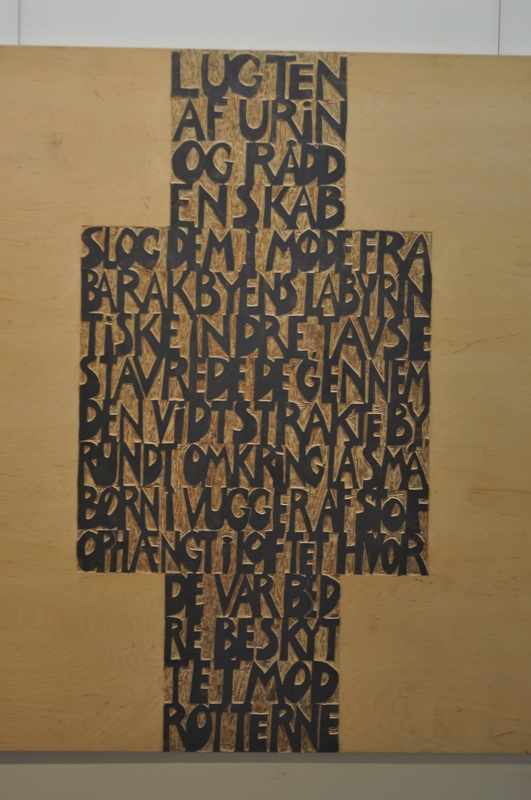 LUGTEN
AF URiN
OG RÅDD
ENSKAB
SLOG DEM I MØDE FRA
BARAKBYENS LABYRIN
TiSKE INDRE. TAVSE
STAVREDE DE GENNEM
DEN ViDTSTRAKTE BY.
RUNDT OMKRiNG LÅ SMÅ
BØRN I VUGGER AF STOF
OPHÆNGT i LOFTET HVOR
DE VAR BED
RE BESKYT
TET MOD
ROTTERNE